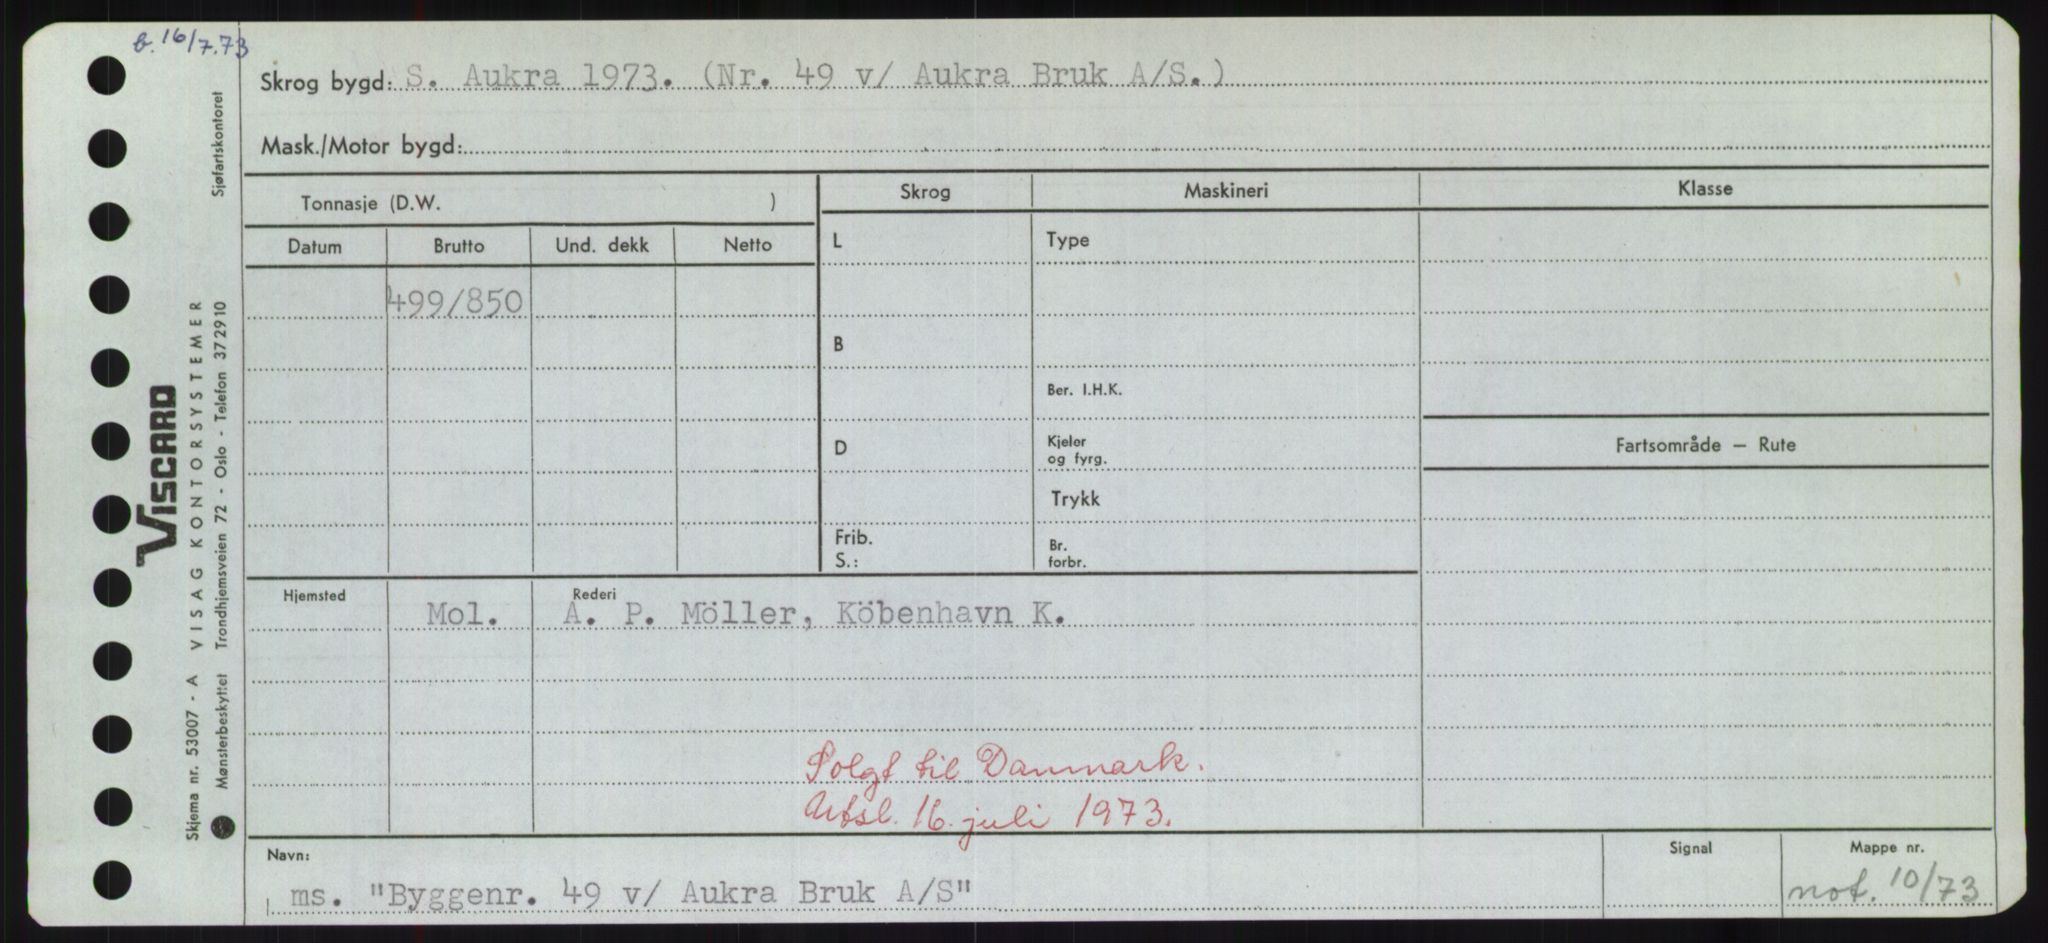 b. 16/7.73
Skrog bygd: S. Aukra 1973. (Nr. 49 v/ Aukra Bruk A/S.)
Mask./Motor bygd:
Tonnasje (D.W. )
Datum Brutto Und. dekk Netto
499/850
Skrog Maskineri Klasse
L Type
B
Ber. I.H.K.
D Kjeler
og fyrg.
Trykk
Frib. Br.
S.: forbr.
Fartsområde — Rute
Hjemsted Rederi
Mol. A. P. Möller, Köbenhavn K.
Solgt til Danmark.
Utsl. 16. juli 1973.
Navn: Signal Mappe nr.
ms. "Byggenr. 49 v/ Aukra Bruk A/S" not. 10/73
VISCARD
Skjema nr. 53007 - A VISAG KONTORSYSTEMER
Mønsterbeskyttet Trondhjemsveien 72 - Oslo - Telefon 372910 Sjøfartskontoret